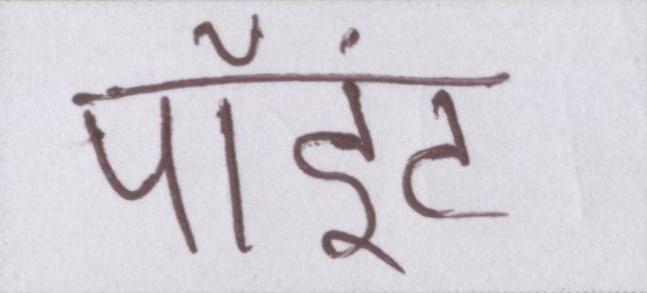 पॉइंट